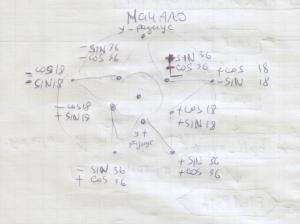 НАЧАЛО
У - радиус
- SIN 36
- COS 36
+ SIN 36
- COS 36
- COS 18
- SIN 18
+ COS 18
- SIN 18
- COS 18
+ SIN 18
+ COS 18
+ SIN 18
У+
радиус
- SIN 36
+ COS 36
+ SIN 36
+ COS 36